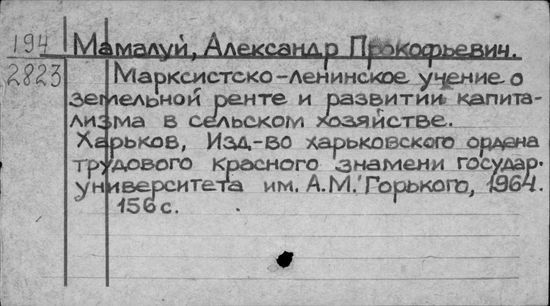 194
2823
Мамалуй, Александр Прокофьевич.
Марксистско-ленинское учение о
земельной ренте и развитии капита-
лизма в сельском хозяйстве.
Харьков, Изд-во харьковского ордена
трудового красного знамени государ.
университета им. А.М. Горького, 1964.
156 с.